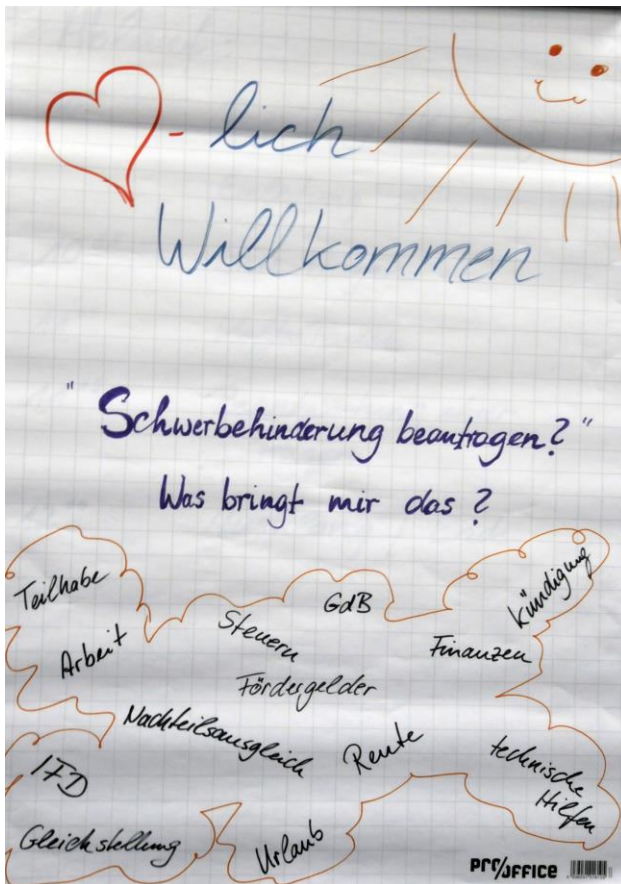 - lich
Willkommen
"Schwerbehinderung beantragen?"
Was bringt mir das?
Teilhabe
GdB
Kündigung
Steuern
Arbeit
Finanzen
Fördergelder
Nachteilsausgleich
Rente
technische
Hilfen
IFD
Gleichstellung
Urlaub
pro/office